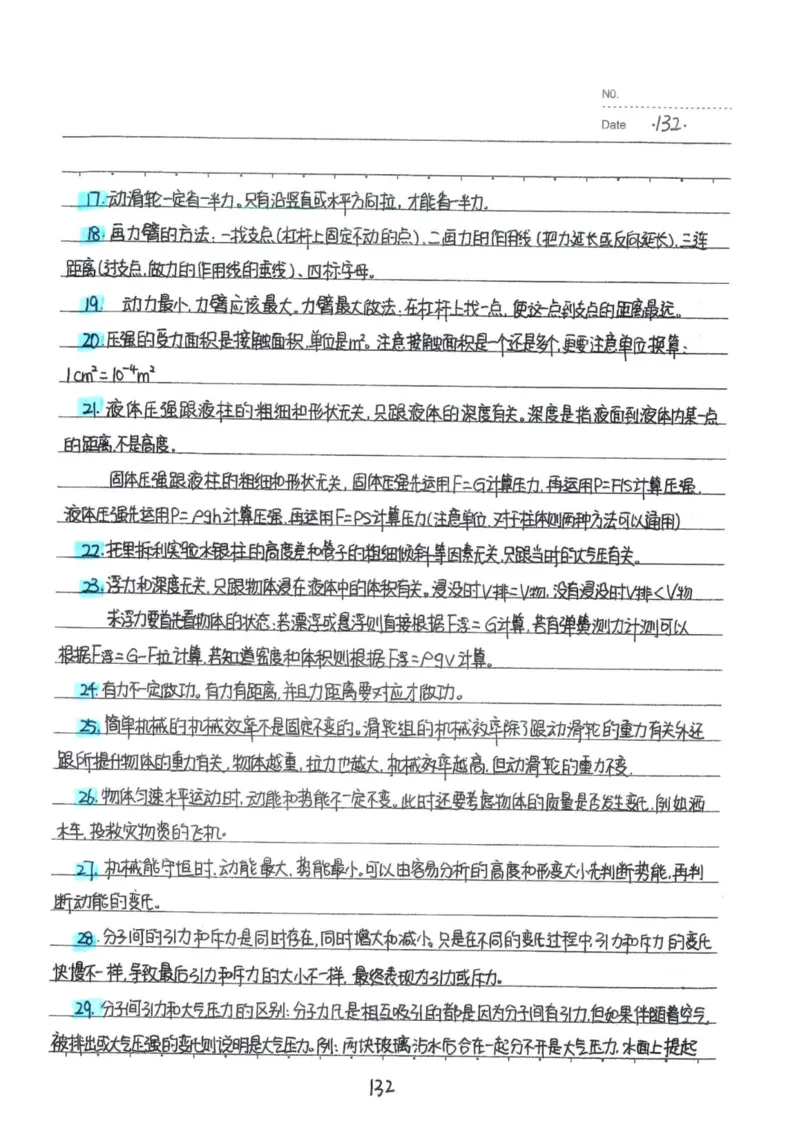 NO.
Date ·132·
17.动滑轮一定省一半力。只有沿竖直或水平方向拉，才能省一半力.
18.画力臂的方法:一找支点(杠杆上固定不动的点),二画力的作用线(把力延长或反向延长),三连
距离(过支点,做力的作用线的垂线)、四标字母。
19. 动力最小,力臂应该最大。力臂最大做法:在杠杆上找一点,使这一点到支点的距离最远。
20.压强的受力面积是接触面积,单位是m²。注意接触面积是一个还是多个,更要注意单位换算:
1cm²=10⁻⁴m²
21.液体压强跟液柱的粗细和形状无关,只跟液体的深度有关。深度是指液面到液体内某一点
的距离,不是高度.
固体压强跟液柱的粗细和形状无关,固体压强先运用F=G计算压力,再运用P=F/S计算压强.
液体压强先运用P=ρgh计算压强,再运用F=PS计算压力(注意单位,对于柱体则两种方法可以通用)
22.托里拆利实验水银柱的高度差和管子的粗细倾斜等因素无关,只跟当时的大气压有关。
23.浮力和深度无关,只跟物体浸在液体中的体积有关。浸没时V排=V物,没有浸没时V排<V物
求浮力要首先看物体的状态:若漂浮或悬浮则直接根据F浮=G计算,若有弹簧测力计测可以
根据F浮=G-F拉计算,若知道密度和体积则根据F浮=ρgv计算。
24.有力不一定做功。有力有距离,并且力距离要对应才做功。
25.简单机械的机械效率不是固定不变的。滑轮组的机械效率除了跟动滑轮的重力有关外还
跟所提升物体的重力有关,物体越重,拉力也越大,机械效率越高,但动滑轮的重力不变.
26.物体匀速水平运动时,动能和势能不一定不变。此时还要考虑物体的质量是否发生变化,例如洒
水车,投救灾物资的飞机。
27.机械能守恒时,动能最大,势能最小。可以由容易分析的高度和形变大小先判断势能,再判
断动能的变化。
28.分子间的引力和斥力是同时存在,同时增大和减小。只是在不同的变化过程中引力和斥力的变化
快慢不一样,导致最后引力和斥力的大小不一样,最终表现为引力或斥力。
29.分子间引力和大气压力的区别:分子力凡是相互吸引的都是因为分子间有引力,但如果伴随着空气
被排出或大气压强的变化则说明是大气压力。例:两块玻璃沾水后合在一起分不开是大气压力,水面上提起
132